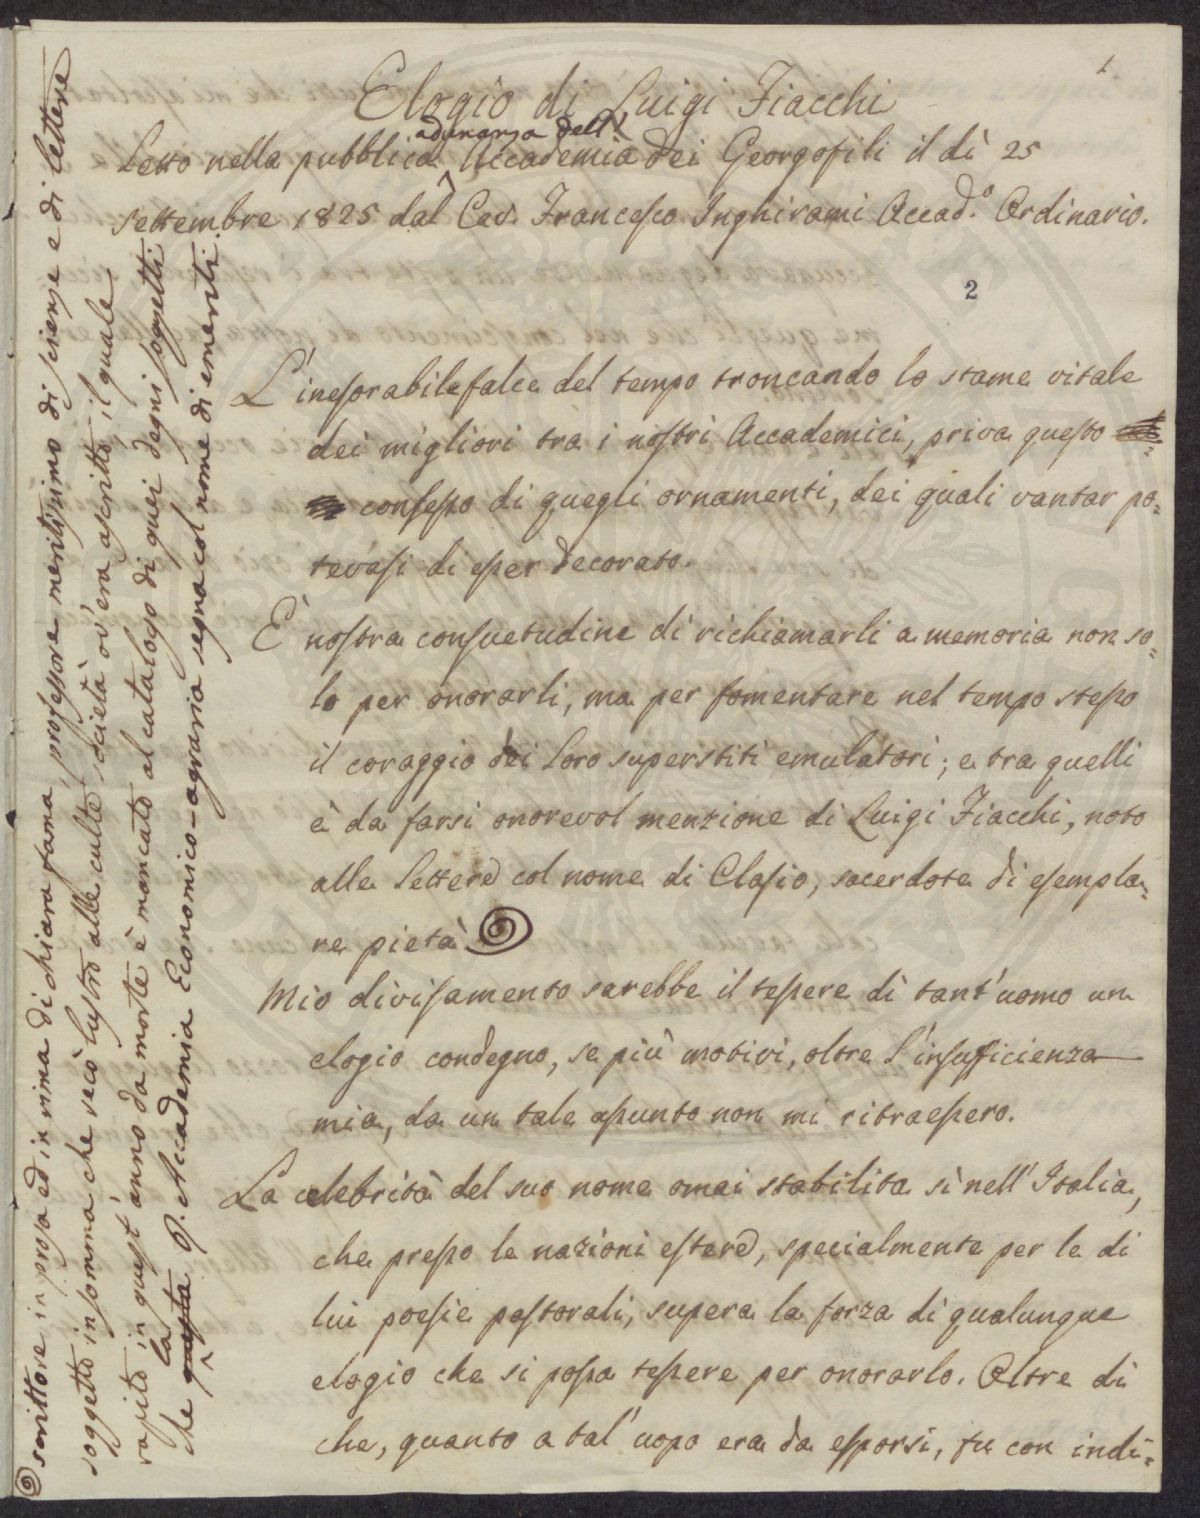 1
Elogio di Luigi Fiacchi
adunanza dell'
Letto nella pubblica Accademia dei Georgofili il dì 25
settembre 1825 dal Cav. Francesco Inghirami Accad.º Ordinario.
2
L'inesorabile falce del tempo troncando lo stame vitale
dei migliori tra i nostri Accademici, priva questo
consesso di quegli ornamenti, dei quali vantar po=
tevasi di esser decorato.
È nostra consuetudine di richiamarli a memoria non so=
lo per onorarli, ma per fomentare nel tempo stesso
il coraggio dei loro superstiti emulatori; e tra quelli
è da farsi onorevol menzione di Luigi Fiacchi, noto
alle Lettere col nome di Clasio, sacerdote di esempla=
re pietà
Mio divisamento sarebbe il tessere di tant'uomo un
elogio condegno, se più motivi, oltre l'insufficienza
mia, da un tale assunto non mi ritraessero.
La celebrità del suo nome omai stabilita sì nell'Italia,
che presso le nazioni estere, specialmente per le di
lui poesie pastorali, supera la forza di qualunque
elogio che si possa tessere per onorarlo. Oltre di
che, quanto a tal'uopo era da esporsi, fu con indi=
scrittore in prosa ed in rima di chiara fama, professore meritissimo di scienze e di lettere
soggetto insomma che recò lustro alle culte società ov'era ascritto, il quale
rapito in quest'anno da morte è mancato al catalogo di quei degni soggetti
che questa la I. Accademia Economico-agraria segna col nome di emeriti.